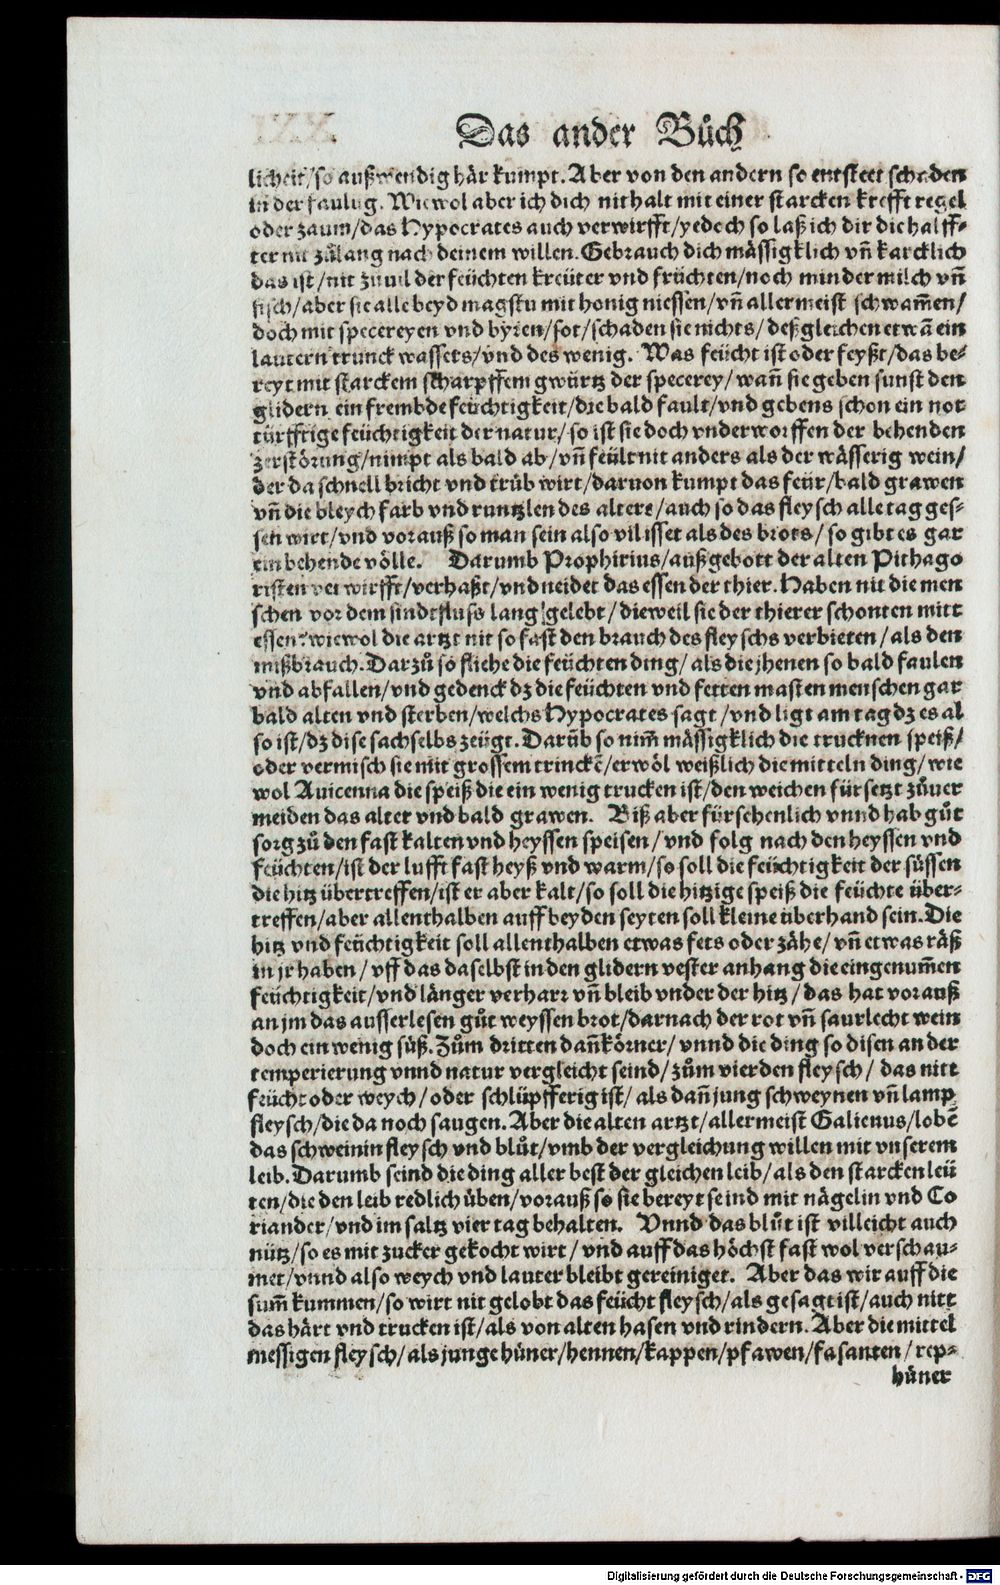 Das ander Bůch
licheit/so außwendig här kumpt. Aber von den andern so entsteet schaden
in der faulug. Wiewol aber ich dich nit halt mit einer starcken krefft regel
oder zaum/das Hypocrates auch verwirfft/yedoch so laß ich dir die halff-
ter nit zůlang nach deinem willen. Gebrauch dich mässigklich vñ karcklich
das ist/nit zuuil der feüchten kreüter vnd früchten/noch minder milch vñ
fisch/aber sie alle beyd magstu mit honig niessen/vñ allermeist schwam̃en/
doch mit specereyen vnd byren/sot/schaden sie nichts/deßgleichen etwã ein
lautern trunck wassers/vnd des wenig. Was feücht ist oder feyßt/das be-
reyt mit starckem scharpffem gwürtz der specerey/wañ sie geben sunst den
glidern ein frembde feüchtigkeit/die bald fault/vnd gebens schon ein not
türfftige feüchtigkeit der natur/so ist sie doch vnderworffen der behenden
zerstörung/nimpt als bald ab/vñ feült nit anders als der wässerig wein/
der da schnell bricht vnd trüb wirt/daruon kumpt das feür/bald grawen
vñ die bleych farb vnd runtzlen des alters/auch so das fleysch alle tag ges-
sen wirt/vnd vorauß so man sein also vil isset als des brots/so gibt es gar
ein behende völle. Darumb Prophirius/außgebott der alten Pithago
risten verwirfft/verhaßt/vnd neidet das essen der thier. Haben nit die men
schen vor dem sindtfluss lang gelebt/dieweil sie der thierer schonten mitt
essen? wiewol die artzt nit so fast den brauch des fleyschs verbieten/als den
mißbrauch. Darzů so fliehe die feüchten ding/als die jhenen so bald faulen
vnd abfallen/vnd gedenck dz die feüchten vnd fetten masten menschen gar
bald alten vnd sterben/welchs Hypocrates sagt/vnd ligt am tag dz es al
so ist/dz dise sach selbs zeügt. Darũb so nim̃ mässigklich die trucknen speiß/
oder vermisch sie mit grossem trinckẽ/erwöl weißlich die mitteln ding/wie
wol Auicenna die speiß die ein wenig trucken ist/den weichen fürsetzt zůuer
meiden das alter vnd bald grawen. Biß aber fürsehenlich vnnd hab gůt
sorg zů den fast kalten vnd heyssen speisen/vnd folg nach den heyssen vnd
feüchten/ist der lufft fast heyß vnd warm/so soll die feüchtigkeit der süssen
die hitz übertreffen/ist er aber kalt/so soll die hitzige speiß die feüchte über-
treffen/aber allenthalben auff beyden seyten soll kleine überhand sein. Die
hitz vnd feüchtigkeit soll allenthalben etwas fets oder zähe/vñ etwas räß
in jr haben/vff das daselbst in den glidern vester anhang die eingenum̃en
feüchtigkeit/vnd länger verharr vñ bleib vnder der hitz/das hat vorauß
an jm das ausserlesen gůt weyssen brot/darnach der rot vñ saurlecht wein
doch ein wenig süß. Zům dritten dañ körner/vnnd die ding so disen an der
temperierung vnnd natur vergleicht seind/zům vierden fleysch/das nitt
feücht oder weych/oder schlüpfferig ist/als dañ jung schweynen vñ lamp
fleysch/die da noch saugen. Aber die alten artzt/allermeist Galienus/lobẽ
das schweinin fleysch vnd blůt/vmb der vergleichung willen mit vnserem
leib. Darumb seind die ding aller best der gleichen leib/als den starcken leü
ten/die den leib redlich üben/vorauß so sie bereyt seind mit nägelin vnd Co
riander/vnd im saltz vier tag behalten. Vnnd das blůt ist villeicht auch
nütz/so es mit zucker gekocht wirt/vnd auff das höchst fast wol verschau-
met/vnnd also weych vnd lauter bleibt gereiniget. Aber das wir auff die
sum̃ kummen/so wirt nit gelobt das feücht fleysch/als gesagt ist/auch nitt
das härt vnd trucken ist/als von alten hasen vnd rindern. Aber die mittel
messigen fleysch/als junge hüner/hennen/kappen/pfawen/fasanten/rep-
hüner
Digitalisierung gefördert durch die Deutsche Forschungsgemeinschaft - DFG